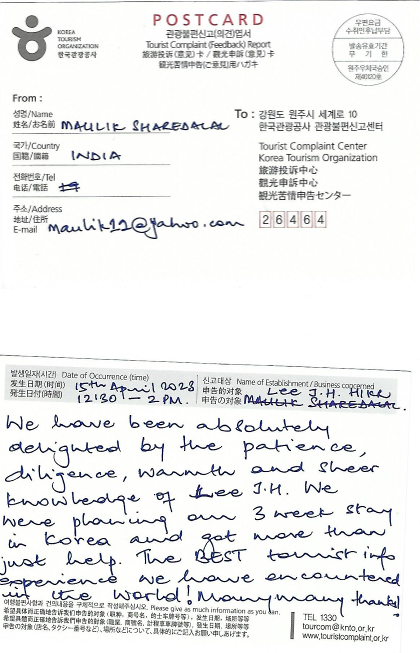 KOREA
TOURISM
ORGANIZATION
한국관광공사
POSTCARD
관광불편신고(의견)엽서
Tourist Complaint (Feedback) Report
旅游投诉(意见)卡 / 觀光申訴(意見)卡
観光苦情申告(ご意見)用ハガキ
우편요금
수취인후납부담
발송유효기간
무 기 한
원주우체국승인
제40120호
From :
성명/Name
姓名/お名前 MAULIK SHAREDALAL
국가/Country
国籍/國籍 INDIA
전화번호/Tel
电话/電話
주소/Address
地址/住所
E-mail maulik12@yahoo.com
To : 강원도 원주시 세계로 10
한국관광공사 관광불편신고센터
Tourist Complaint Center
Korea Tourism Organization
旅游投诉中心
觀光申訴中心
観光苦情申告センター
26464
발생일자(시간) Date of Occurrence (time)
发生日期(时间) 15th April 2023
発生日付(時間) 12:30 - 2 PM.
신고대상 Name of Establishment / Business concerned
申告的对象 Lee J.H.
申告の対象 MAULIK SHAREDALAL
We have been absolutely
delighted by the patience,
diligence, warmth and sheer
knowledge of Lee J.H. We
were planning our 3 week stay
in Korea and got more than
just help. The BEST tourist info
experience we have encountered
in the world! Many many thanks!
여행불편사항과 건의내용을 구체적으로 작성해주십시오. Please give as much information as you can.
TEL 1330
tourcom@knto.or.kr
www.touristcomplaint.or.kr